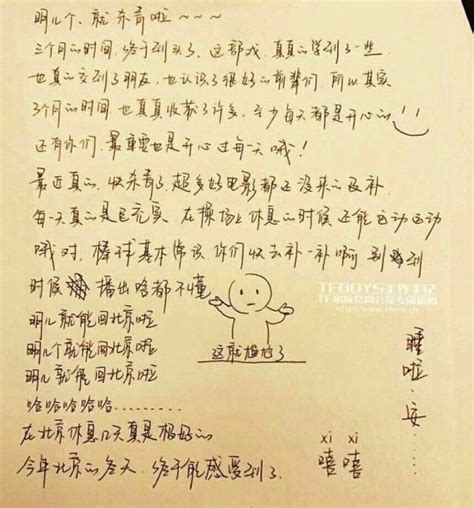 明儿个、就杀青啦~~~~
三个月的时间,终于到头了。这部戏,真真的学到了一些
也真的交到了朋友,也认识了很好的前辈们,所以其实
3个月的时间也真真收获了许多,至少每天都是开心的
还有你们,最重要也是开心过每一天哦!
最近真的,快杀青了,超多好电影都还没来的及补
每一天真的是巨充实,在操场上休息的时候还能运动运动
哦对,棒球基本常识你们快去补一补啊别到
时候播出啥都不懂
TFBOYS工作手记
明儿就能回北京啦
明儿个就能回北京啦
明儿就能回北京啦
这就尴尬了
哈哈哈哈哈........
在北京休息几天真是极好的
今年北京的冬天,终于能感受到了.
xi xi
嘻嘻
睡啦.安....